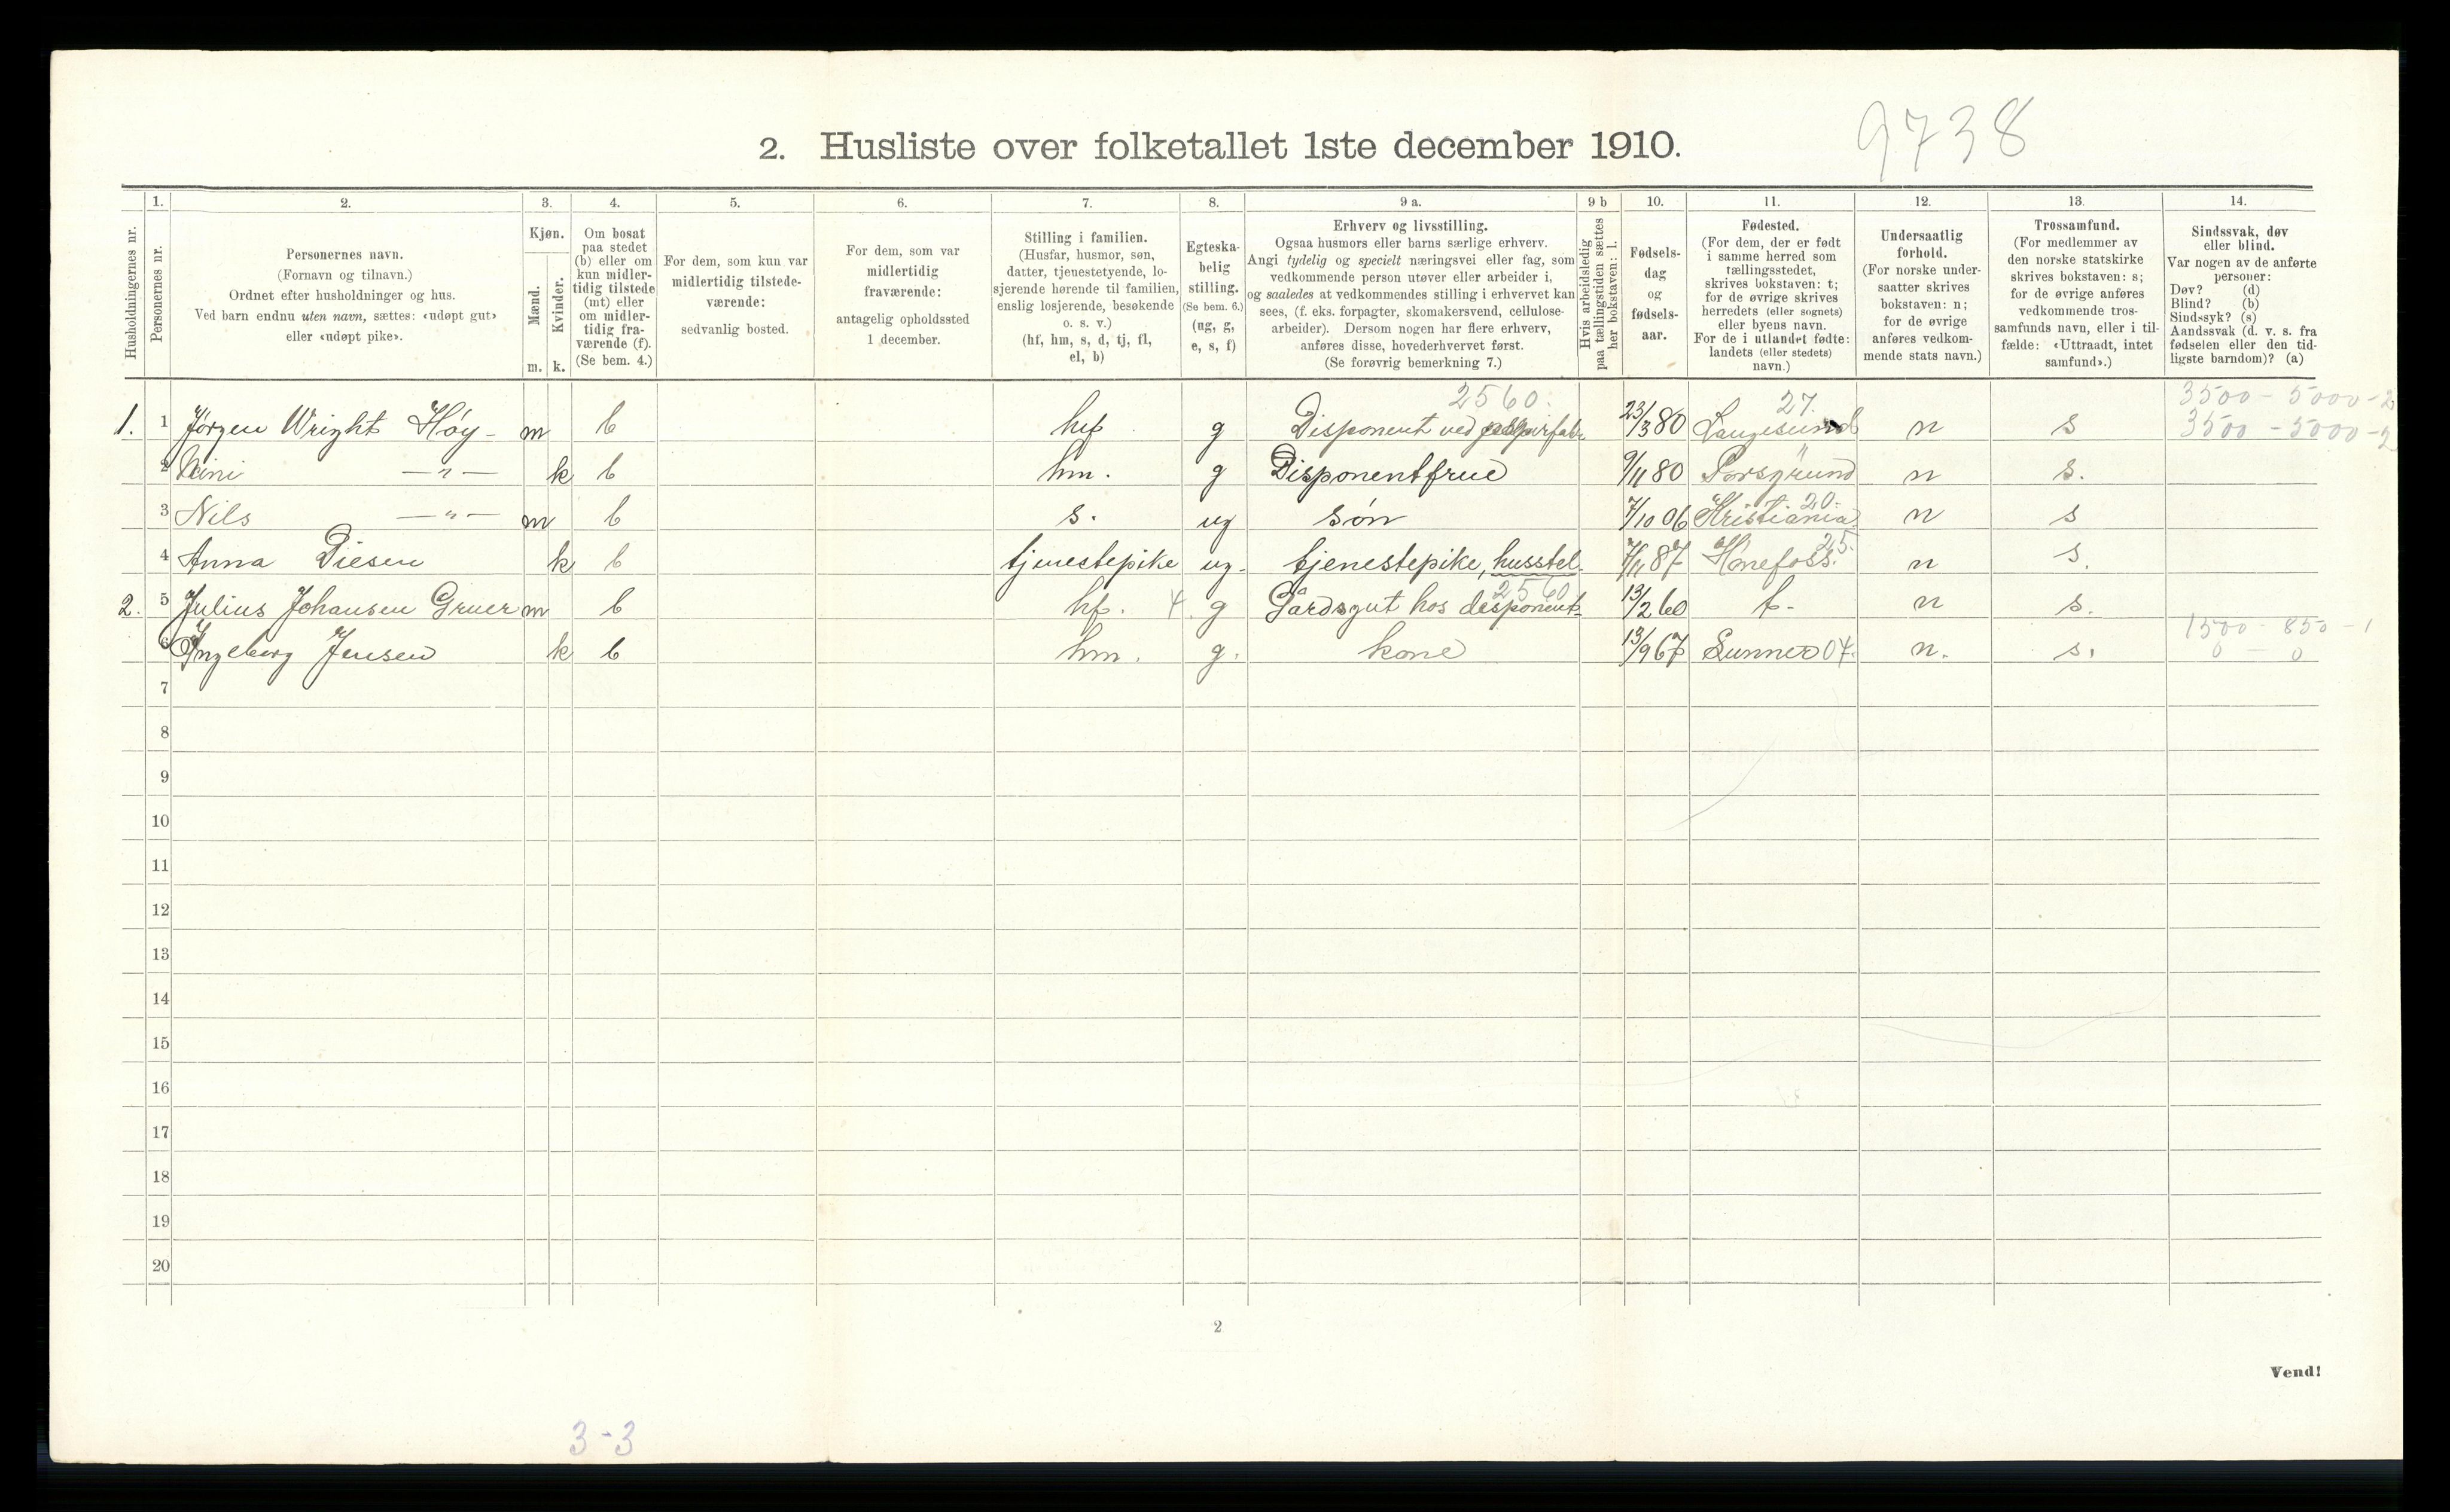 2. Husliste over folketallet 1ste december 1910.
9738
Husholdningernes nr.
1. Personernes nr.
2. Personernes navn.
(Fornavn og tilnavn.)
Ordnet efter husholdninger og hus.
Ved barn endnu uten navn, sættes: «udøpt gut»
eller «udøpt pike».
3. Kjøn.
Mænd. m.
Kvinder. k.
4. Om bosat
paa stedet
(b) eller om
kun midler-
tidig tilstede
(mt) eller
om midler-
tidig fra-
værende (f).
(Se bem. 4.)
5. For dem, som kun var
midlertidig tilstede-
værende:
sedvanlig bosted.
6. For dem, som var
midlertidig
fraværende:
antagelig opholdssted
1 december.
7. Stilling i familien.
(Husfar, husmor, søn,
datter, tjenestetyende, lo-
sjerende hørende til familien,
enslig losjerende, besøkende
o. s. v.)
(hf, hm, s, d, tj, fl,
el, b)
8. Egteska-
belig
stilling.
(Se bem. 6.)
(ug, g,
e, s, f)
9 a. Erhverv og livsstilling.
Ogsaa husmors eller barns særlige erhverv.
Angi tydelig og specielt næringsvei eller fag, som
vedkommende person utøver eller arbeider i,
og saaledes at vedkommendes stilling i erhvervet kan
sees, (f. eks. forpagter, skomakersvend, cellulose-
arbeider). Dersom nogen har flere erhverv,
anføres disse, hovederhvervet først.
(Se forøvrig bemerkning 7.)
9 b Hvis arbeidsledig
paa tællingstiden sættes
her bokstaven: l.
10. Fødsels-
dag
og
fødsels-
aar.
11. Fødested.
(For dem, der er født
i samme herred som
tællingsstedet,
skrives bokstaven: t;
for de øvrige skrives
herredets (eller sognets)
eller byens navn.
For de i utlandet fødte:
landets (eller stedets)
navn.)
12. Undersaatlig
forhold.
(For norske under-
saatter skrives
bokstaven: n;
for de øvrige
anføres vedkom-
mende stats navn.)
13. Trossamfund.
(For medlemmer av
den norske statskirke
skrives bokstaven: s;
for de øvrige anføres
vedkommende tros-
samfunds navn, eller i til-
fælde: «Uttraadt, intet
samfund».)
14. Sindssvak, døv
eller blind.
Var nogen av de anførte
personer:
Døv? (d)
Blind? (b)
Sindssyk? (s)
Aandssvak (d. v. s. fra
fødselen eller den tid-
ligste barndom)? (a)
2560. 27. 3500 - 5000 - 2
1. 1 Jørgen Wright Høy - m b hf g Disponent ved papirfabr 23/3 80 Langesund n s 3500 - 5000 - 2
2 Nini —"— k b hm. g Disponentfrue 9/11 80 Porsgrund n s.
3 Nils —"— m b s. ug søn 7/10 06 Kristiania 20. n s
4 Anna Diesen k b tjenestepike ug. tjenestepike, husstel. 7/11 87 Hønefoss. 25. n s.
2. 5 Julius Johansen Gruer m b hf. 4. g Gårdsgut hos disponent 2560 13/2 60 t- n s.
6 Ingeborg Jensen k b hm. g. kone 13/9 67 Gunner 04. n. s. 1500 - 850 - 1
0 - 0
7
8
9
10
11
12
13
14
15
16
17
18
19
20
2
Vend!
3-3